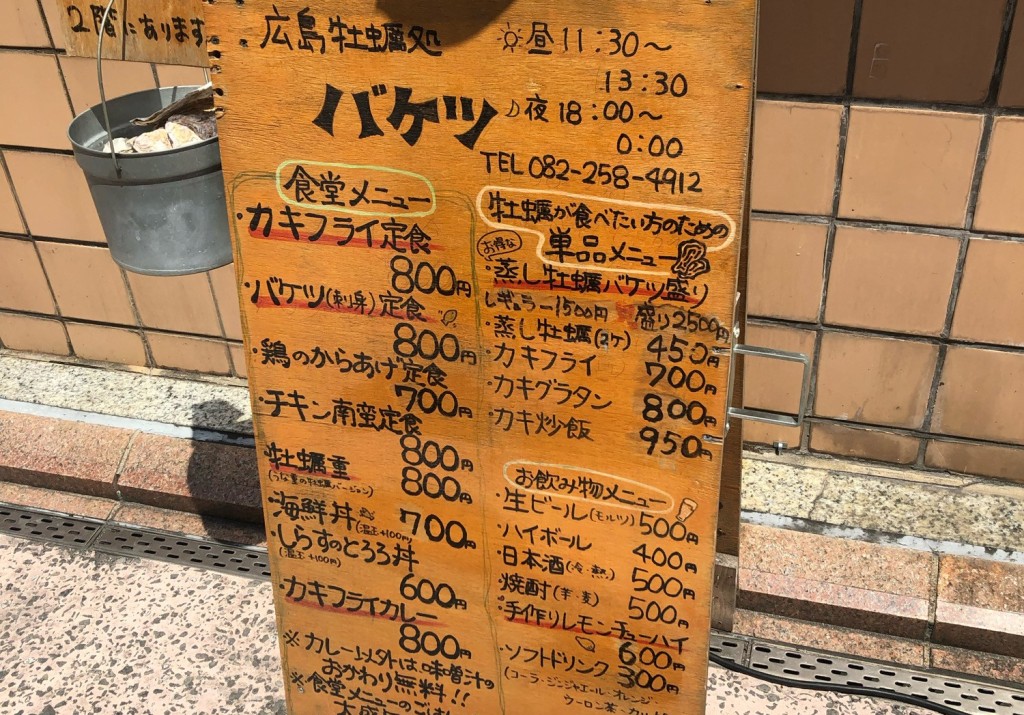 2階にあります。
広島牡蠣処
バケツ
昼11:30～
13:30
夜18:00～
0:00
TEL 082-258-4912
食堂メニュー
・カキフライ定食
800円
・バケツ(刺身)定食
800円
・鶏のからあげ定食
700円
・チキン南蛮定食
800円
・牡蠣重
(うな重の牡蠣バージョン)
800円
・海鮮丼
(温玉+100円)
700円
・しらすのとろろ丼
(温玉+100円)
600円
・カキフライカレー
800円
※カレー以外は味噌汁の
おかわり無料!!
※食堂メニューのごはん
牡蠣が食べたい方のための
お得な
単品メニュー
・蒸し牡蠣バケツ盛り
レギュラー1500円 盛り2500円
・蒸し牡蠣(2ケ) 450円
・カキフライ 700円
・カキグラタン 800円
・カキ炒飯 950円
お飲み物メニュー
・生ビール(モルツ) 500円
・ハイボール 400円
・日本酒(冷・熱) 500円
・焼酎(芋・麦) 500円
・手作りレモンチューハイ
600円
・ソフトドリンク 300円
(コーラ・ジンジャエール・オレンジ・
ウーロン茶・カル